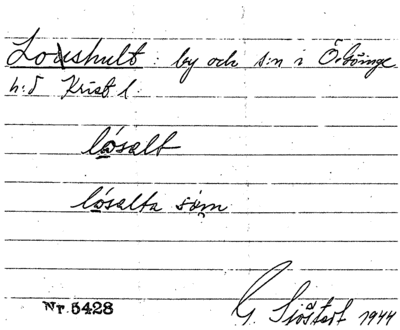 Loushult: by och s:n i Ö. Göinge
h:d Krist l.
lósalt
lósalta sóm
Nr. 5428
G. Sjöstedt 1944